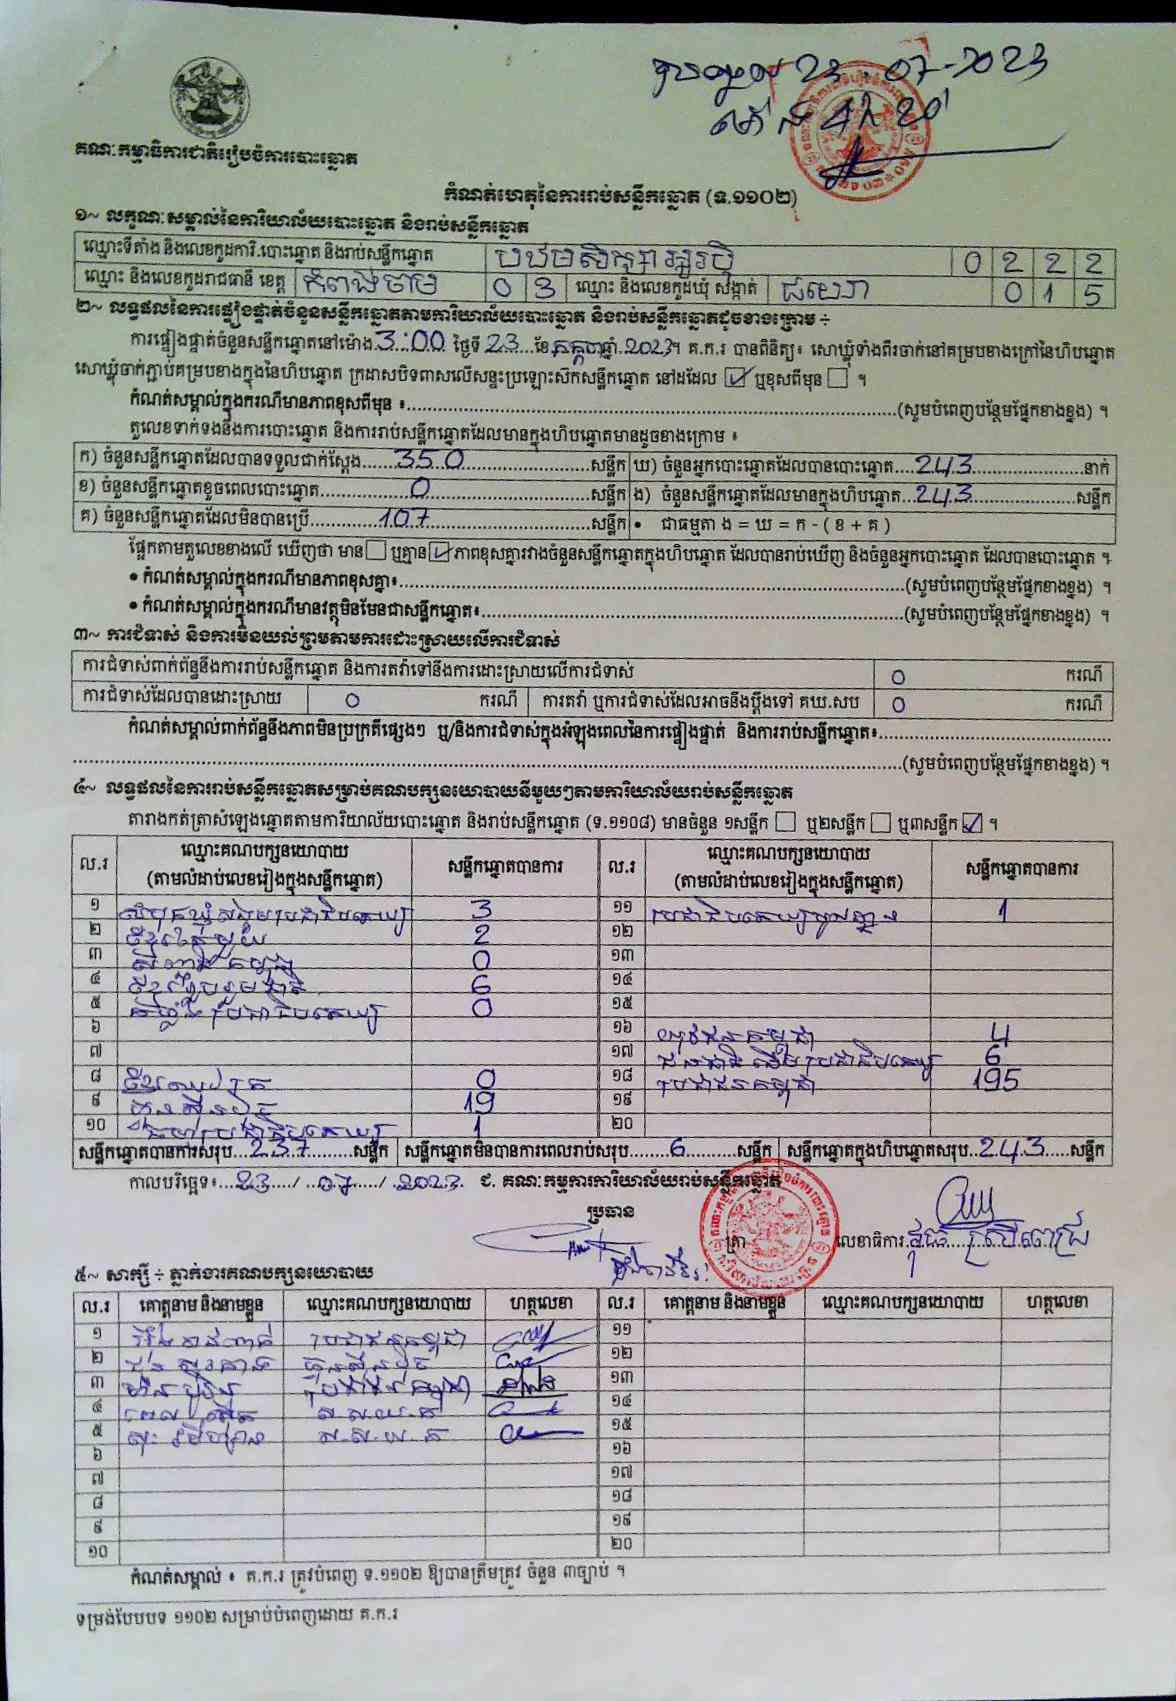 23.07-2023
គណៈកម្មាធិការជាតិរៀបចំការបោះឆ្នោត
កំណត់ហេតុនៃការរាប់សន្លឹកឆ្នោត (ទ.១១០២)
១~ លក្ខណៈសម្គាល់នៃការិយាល័យបោះឆ្នោត និងរាប់សន្លឹកឆ្នោត
ឈ្មោះទីតាំង និងលេខកូដការិ.បោះឆ្នោត និងរាប់សន្លឹកឆ្នោត បឋមសិក្សា 0 2 2 2
ឈ្មោះ និងលេខកូដរាជធានី ខេត្ត កំពង់ចាម 0 3 ឈ្មោះ និងលេខកូដឃុំ សង្កាត់ 0 1 5
២~ លទ្ធផលនៃការផ្ទៀងផ្ទាត់ចំនួនសន្លឹកឆ្នោតតាមការិយាល័យបោះឆ្នោត និងរាប់សន្លឹកឆ្នោតដូចខាងក្រោម ÷
ការផ្ទៀងផ្ទាត់ចំនួនសន្លឹកឆ្នោតនៅម៉ោង 3:00 ថ្ងៃទី 23 ខែ កក្កដា ឆ្នាំ 2023។ គ.ក.រ បានពិនិត្យ៖ សោឃ្លុំទាំងពីរចាក់នៅគម្របខាងក្រៅនៃហិបឆ្នោត
សោឃ្លុំចាក់ភ្ជាប់គម្របខាងក្នុងនៃហិបឆ្នោត ក្រដាសបិទពាសលើសន្ទះប្រឡោះស៊កសន្លឹកឆ្នោត នៅដដែល ☑ ឬខុសពីមុន ☐ ។
កំណត់សម្គាល់ក្នុងករណីមានភាពខុសពីមុន ៖ (សូមបំពេញបន្ថែមផ្នែកខាងខ្នង) ។
តួលេខទាក់ទងនឹងការបោះឆ្នោត និងការរាប់សន្លឹកឆ្នោតដែលមានក្នុងហិបឆ្នោតមានដូចខាងក្រោម ៖
ក) ចំនួនសន្លឹកឆ្នោតដែលបានទទួលជាក់ស្តែង 350 សន្លឹក ឃ) ចំនួនអ្នកបោះឆ្នោតដែលបានបោះឆ្នោត 243 នាក់
ខ) ចំនួនសន្លឹកឆ្នោតខូចពេលបោះឆ្នោត 0 សន្លឹក ង) ចំនួនសន្លឹកឆ្នោតដែលមានក្នុងហិបឆ្នោត 243 សន្លឹក
គ) ចំនួនសន្លឹកឆ្នោតដែលមិនបានប្រើ 107 សន្លឹក • ជាធម្មតា ង = ឃ = ក - ( ខ + គ )
ផ្អែកតាមតួលេខខាងលើ ឃើញថា មាន ☐ ឬគ្មាន ☑ ភាពខុសគ្នារវាងចំនួនសន្លឹកឆ្នោតក្នុងហិបឆ្នោត ដែលបានរាប់ឃើញ និងចំនួនអ្នកបោះឆ្នោត ដែលបានបោះឆ្នោត ។
• កំណត់សម្គាល់ក្នុងករណីមានភាពខុសគ្នា៖ (សូមបំពេញបន្ថែមផ្នែកខាងខ្នង) ។
• កំណត់សម្គាល់ក្នុងករណីមានវត្ថុមិនមែនជាសន្លឹកឆ្នោត៖ (សូមបំពេញបន្ថែមផ្នែកខាងខ្នង) ។
៣~ ការជំទាស់ និងការមិនយល់ព្រមតាមការដោះស្រាយលើការជំទាស់
ការជំទាស់ពាក់ព័ន្ធនឹងការរាប់សន្លឹកឆ្នោត និងការតវ៉ាទៅនឹងការដោះស្រាយលើការជំទាស់ 0 ករណី
ការជំទាស់ដែលបានដោះស្រាយ 0 ករណី ការតវ៉ា ឬការជំទាស់ដែលអាចនឹងប្តឹងទៅ គឃ.សប 0 ករណី
កំណត់សម្គាល់ពាក់ព័ន្ធនឹងភាពមិនប្រក្រតីផ្សេងៗ ឬ/និងការជំទាស់ក្នុងអំឡុងពេលនៃការផ្ទៀងផ្ទាត់ និងការរាប់សន្លឹកឆ្នោត៖
(សូមបំពេញបន្ថែមផ្នែកខាងខ្នង) ។
៤~ លទ្ធផលនៃការរាប់សន្លឹកឆ្នោតសម្រាប់គណបក្សនយោបាយនីមួយៗតាមការិយាល័យរាប់សន្លឹកឆ្នោត
តារាងកត់ត្រាសំឡេងឆ្នោតតាមការិយាល័យបោះឆ្នោត និងរាប់សន្លឹកឆ្នោត (ទ.១១០៨) មានចំនួន ១សន្លឹក ☐ ឬ២សន្លឹក ☐ ឬ៣សន្លឹក ☑ ។
ល.រ ឈ្មោះគណបក្សនយោបាយ (តាមលំដាប់លេខរៀងក្នុងសន្លឹកឆ្នោត) សន្លឹកឆ្នោតបានការ ល.រ ឈ្មោះគណបក្សនយោបាយ (តាមលំដាប់លេខរៀងក្នុងសន្លឹកឆ្នោត) សន្លឹកឆ្នោតបានការ
១ សំបុកឃ្មុំសង្គមប្រជាធិបតេយ្យ 3 ១១ ប្រជាធិបតេយ្យមូលដ្ឋាន 1
២ ខ្មែរតែមួយ 2 ១២
៣ 0 ១៣
៤ ខ្មែររួបរួមជាតិ 6 ១៤
៥ កម្លាំងប្រជាធិបតេយ្យ 0 ១៥
៦ ១៦ យុវជនកម្ពុជា 4
៧ ១៧ ជនជាតិដើមប្រជាធិបតេយ្យ 6
៨ 0 ១៨ ប្រជាជនកម្ពុជា 195
៩ ហ្វ៊ុនស៊ិនប៉ិច 19 ១៩
១០ 1 ២០
សន្លឹកឆ្នោតបានការសរុប 237 សន្លឹក សន្លឹកឆ្នោតមិនបានការពេលរាប់សរុប 6 សន្លឹក សន្លឹកឆ្នោតក្នុងហិបឆ្នោតសរុប 243 សន្លឹក
កាលបរិច្ឆេទ៖ 23 / 07 / 2023 ជ. គណៈកម្មការការិយាល័យរាប់សន្លឹកឆ្នោត
ប្រធាន
ត្រា លេខាធិការ
៥~ សាក្សី ÷ ភ្នាក់ងារគណបក្សនយោបាយ
ល.រ គោត្តនាម និងនាមខ្លួន ឈ្មោះគណបក្សនយោបាយ ហត្ថលេខា ល.រ គោត្តនាម និងនាមខ្លួន ឈ្មោះគណបក្សនយោបាយ ហត្ថលេខា
១ ប្រជាជនកម្ពុជា ១១
២ ហ្វ៊ុនស៊ិនប៉ិច ១២
៣ ប្រជាជនកម្ពុជា ១៣
៤ ស.ស.យ.ក ១៤
៥ ស.ស.យ.ក ១៥
៦ ១៦
៧ ១៧
៨ ១៨
៩ ១៩
១០ ២០
កំណត់សម្គាល់ ៖ គ.ក.រ ត្រូវបំពេញ ទ.១១០២ ឱ្យបានត្រឹមត្រូវ ចំនួន ៣ច្បាប់ ។
ទម្រង់បែបបទ ១១០២ សម្រាប់បំពេញដោយ គ.ក.រ